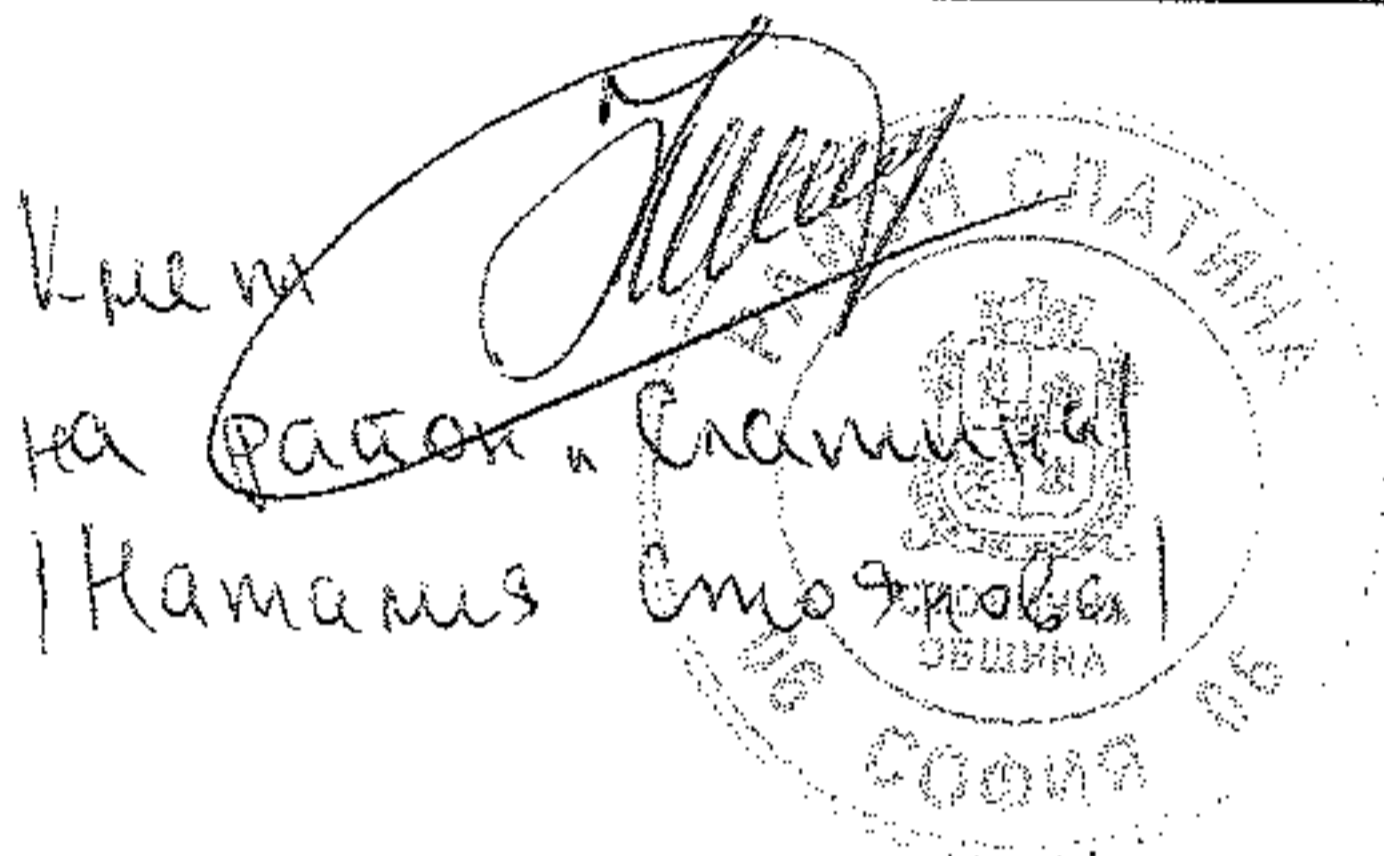 Кмет
на район „Слатина"
/Наталия Стоянова/
РАЙОН СЛАТИНА
ОБЩИНА
СОФИЯ